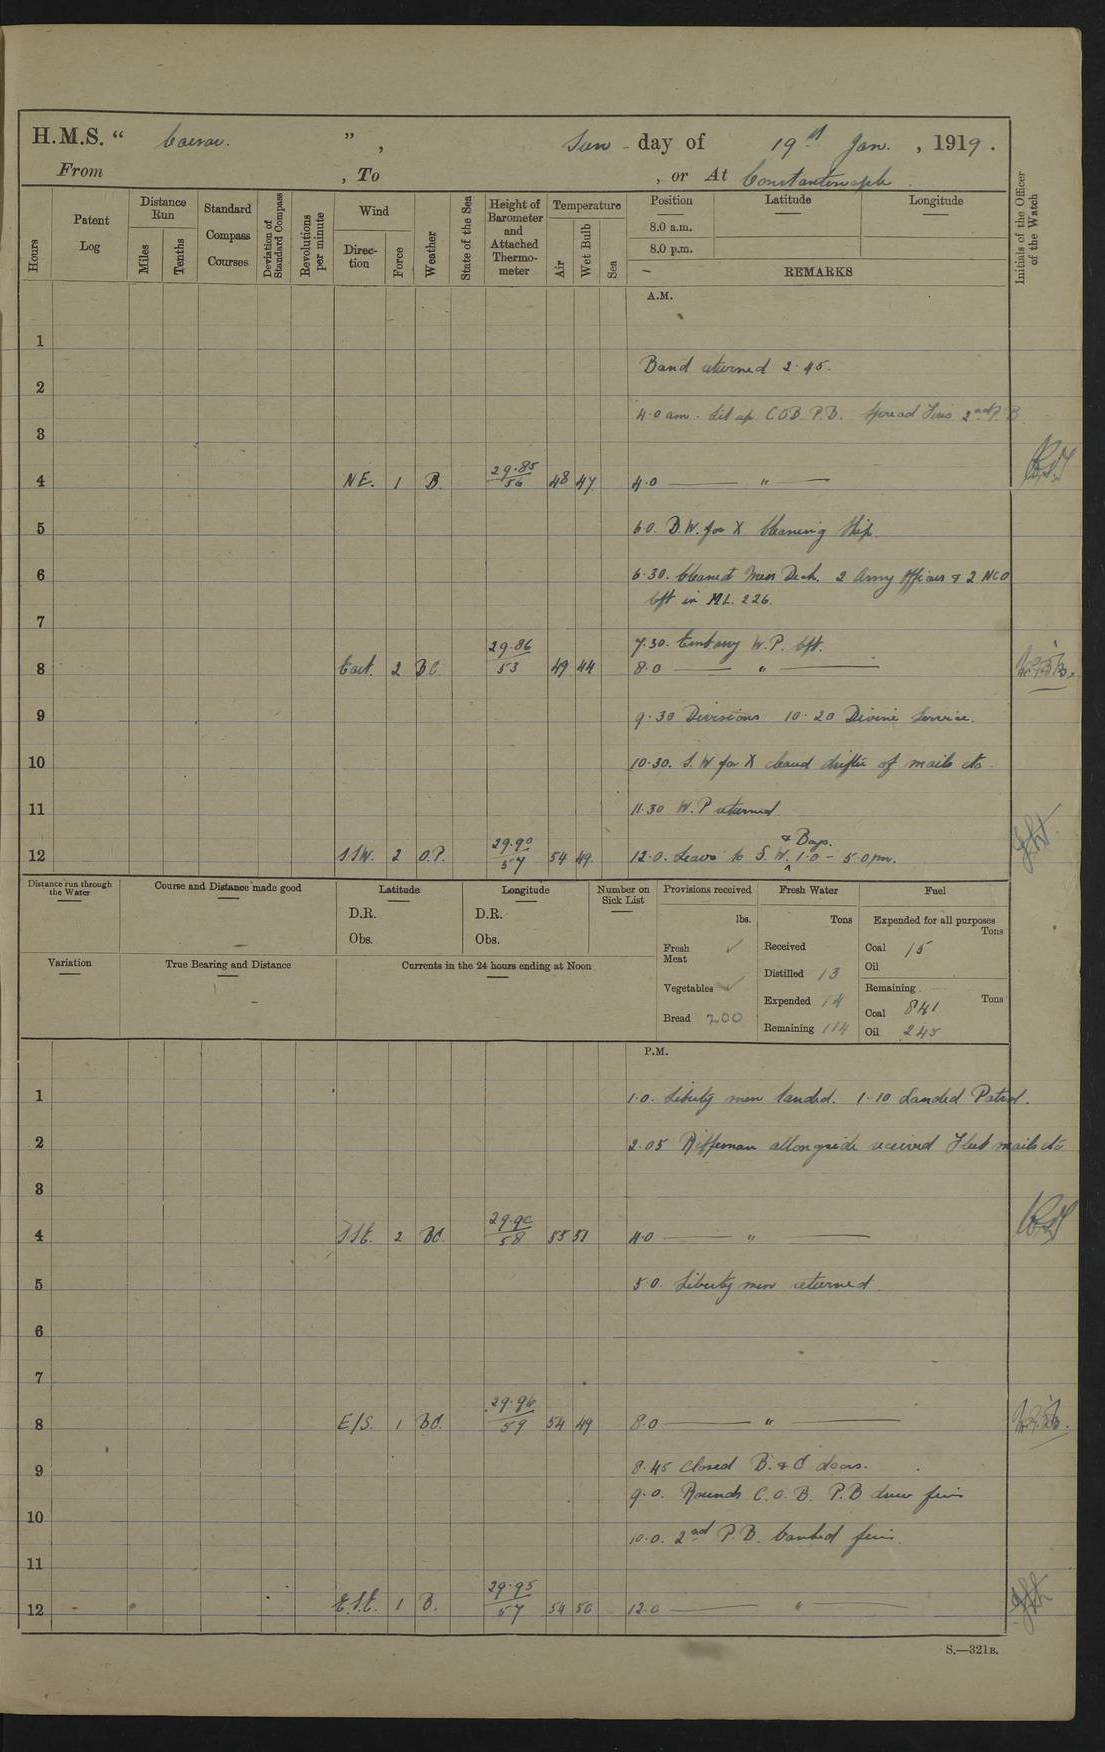 H.M.S. " Caesar. ", Sun - day of 19th Jan. , 1919.
From , To , or At Constantinople.
Hours
Patent Log
Distance Run
Miles
Tenths
Standard Compass Courses
Deviation of Standard Compass
Revolutions per minute
Wind
Direc-tion
Force
Weather
State of the Sea
Height of Barometer and Attached Thermo-meter
Temperature
Air
Wet Bulb
Sea
Position Latitude Longitude
8.0 a.m.
8.0 p.m.
REMARKS
Initials of the Officer of the Watch
A.M.
1
Band returned 2.45.
2
4.0 am. Lit up C.O.B. P.B. Spread Fires 2nd P.B
3
4 NE. 1 B. 29.85/56 48 47 4.0 — " —
5 6.0. B.W. for X Cleaning Ship.
6 6.30. Cleaned Mess Deck. 2 Army Officers & 2 NCO
left in ML. 226.
7
7.30. Embassy W.P. left.
8 East. 2 BC. 29.86/53 49 44 8.0 — " —
9 9.30 Divisions 10.20 Divine Service.
10 10.30. S.W for X cleared drifter of mails etc
11 11.30 W.P returned
& Boys.
12 SSW. 2 O.P. 29.90/57 54 49 12.0. Leave to S.W. 1.0 - 5.0 pm.
Distance run through the Water
Course and Distance made good
Latitude
D.R.
Obs.
Longitude
D.R.
Obs.
Number on Sick List
Provisions received
lbs.
Fresh Meat ✓
Vegetables ✓
Bread 200
Fresh Water
Tons
Received
Distilled 13
Expended 14
Remaining 114
Fuel
Expended for all purposes
Tons
Coal 15
Oil
Remaining
Tons
Coal 841
Oil 245
Variation
True Bearing and Distance
Currents in the 24 hours ending at Noon
P.M.
1 1.0. Liberty men landed. 1.10 Landed Patrol.
2 2.05 Rifleman alongside received Fleet mails etc
3
4 SSE. 2 BC. 29.90/58 55 51 4.0 — " —
5 5.0. Liberty men returned
6
7
8 E/S. 1 BC. 29.96/59 54 49 8.0 — " —
8.45 Closed B. & C doors.
9
9.0. Rounds C.O.B. P.B drew fires
10
10.0. 2nd P.B. banked fires.
11
12 E.S.E. 1 B. 29.95/57 54 50 12.0 — " —
S.—321B.